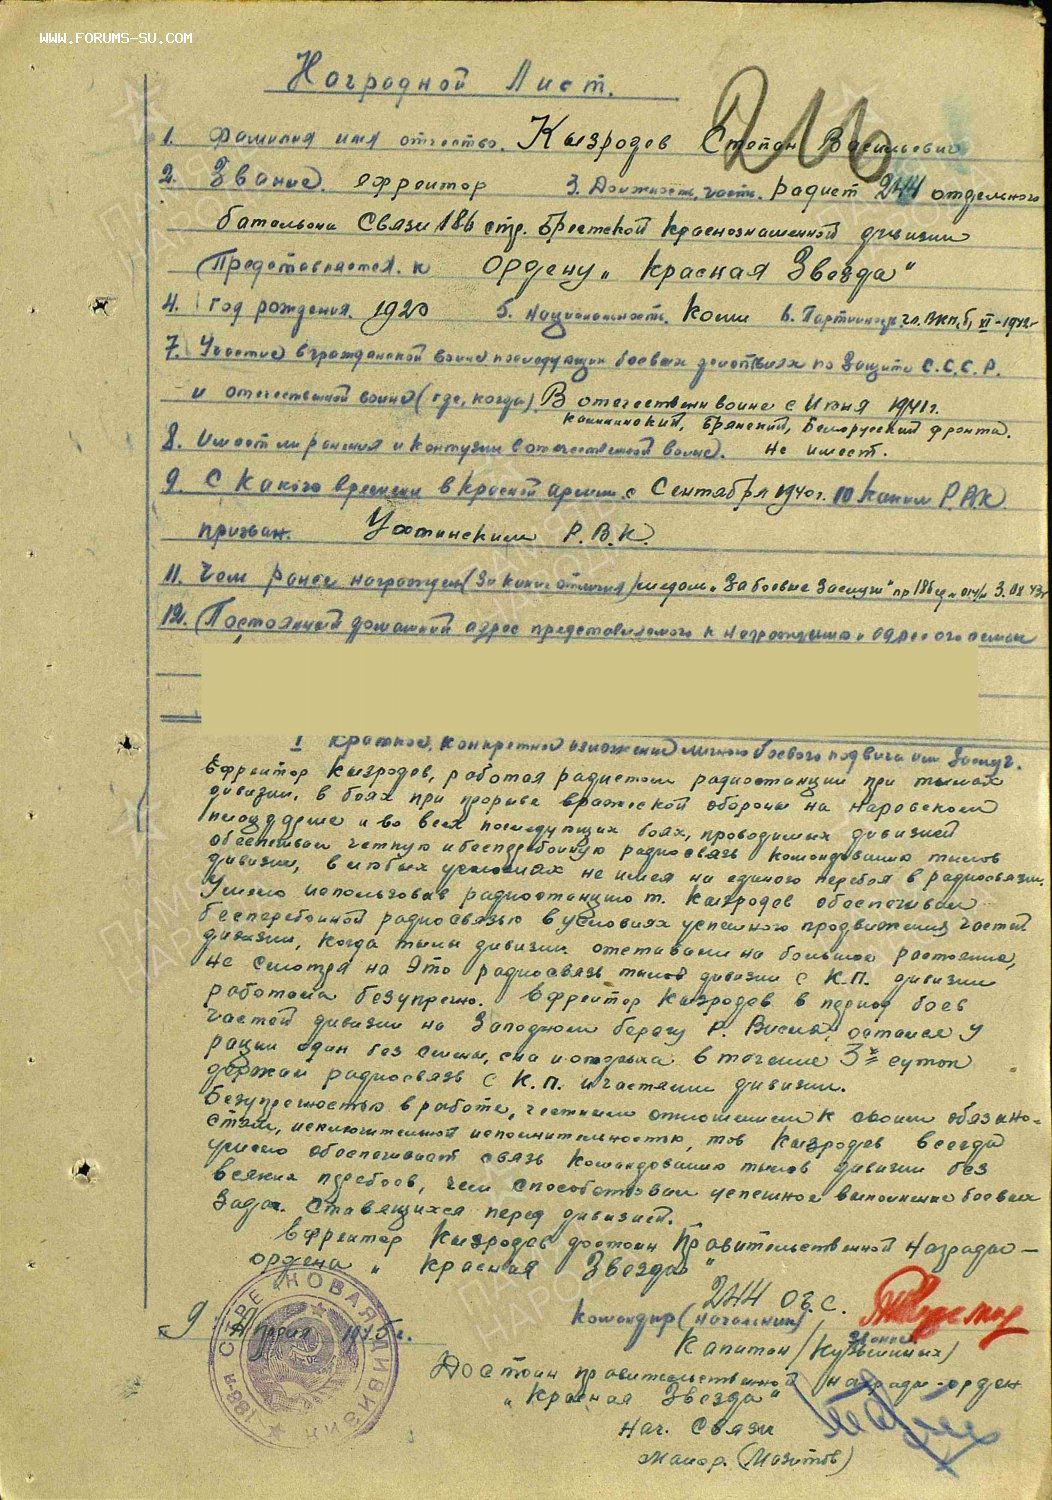 WWW.FORUMS-SU.COM
Наградной Лист.
1. Фамилия имя отчество. Кызродев Степан Васильевич
2. Звание. ефрейтор 3. Должность, часть. радист 244 отдельного
батальона Связи 186 стр. Брестской Краснознаменной дивизии
Представляется к ордену „Красная Звезда"
4. год рождения. 1920 5. Национальность. Коми 6. Партийность чл. ВКП(б) XI-1942г
7. Участие в гражданской войне последующих боевых действиях по защите С.С.С.Р.
и отечественной войне (где, когда). В отечествен войне с Июня 1941г.
Калининский, Брянский, Белорусский фронта.
8. Имеет ли ранения и контузии в отечественной войне. Не имеет.
9. С Какого времени в Красной армии с Сентября 1940г. 10 Каким Р.В.К.
призван. Ухтинским Р.В.К.
11. Чем ранее награжден (За какие отличия) медаль „За боевые Заслуги" пр 186 сд от 3.08.43г
12. Постоянный домашний адрес представляемого к награждению и адрес его семьи
I Краткое, конкретное изложение личного боевого подвига или Заслуг.
Ефрейтор Кызродев, работая радистом радиостанции при тылах
дивизии. В боях при прорыве вражеской обороны на Наревском
плацдарме и во всех последующих боях, проводимых дивизией
обеспечивал четкую и бесперебойную радиосвязь командованию тылов
дивизии, в любых условиях не имея ни единого перебоя в радиосвязи.
Умело использовав радиостанцию т. Кызродев обеспечивал
бесперебойной радиосвязью в условиях успешного продвижения частей
дивизии, когда тылы дивизии отставали на большое растояние,
не смотря на это радиосвязь тылов дивизии с К.П. дивизии
работала безупречно. Ефрейтор Кызродев в период боев
частей дивизии на Западном берегу р. Висла, остался у
рации один без смены, сна и отдыха в течение 3х суток
держал радиосвязь с К.П. и частями дивизии.
Безупречностью в работе, честным отношением к своим обязано-
стям, исключительной исполнительностью, тов Кызродев всегда
умело обеспечивает связь командованию тылов дивизии без
всяких перебоев, чем способствовал успешное выполнение боевых
задач. Ставящихся перед дивизией.
Ефрейтор Кызродев достоин Правительственной Награды –
ордена „Красная Звезда"
9 Апреля 1945г.
Командир (начальник) 244 ОБС.
Капитан
Достоин правительственной награды-орден
„Красная Звезда"
Нач. Связи
майор. (Мазитов)